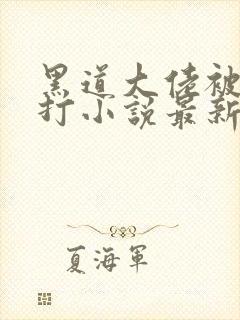 黑道大佬被
打小說最新
夏海軍